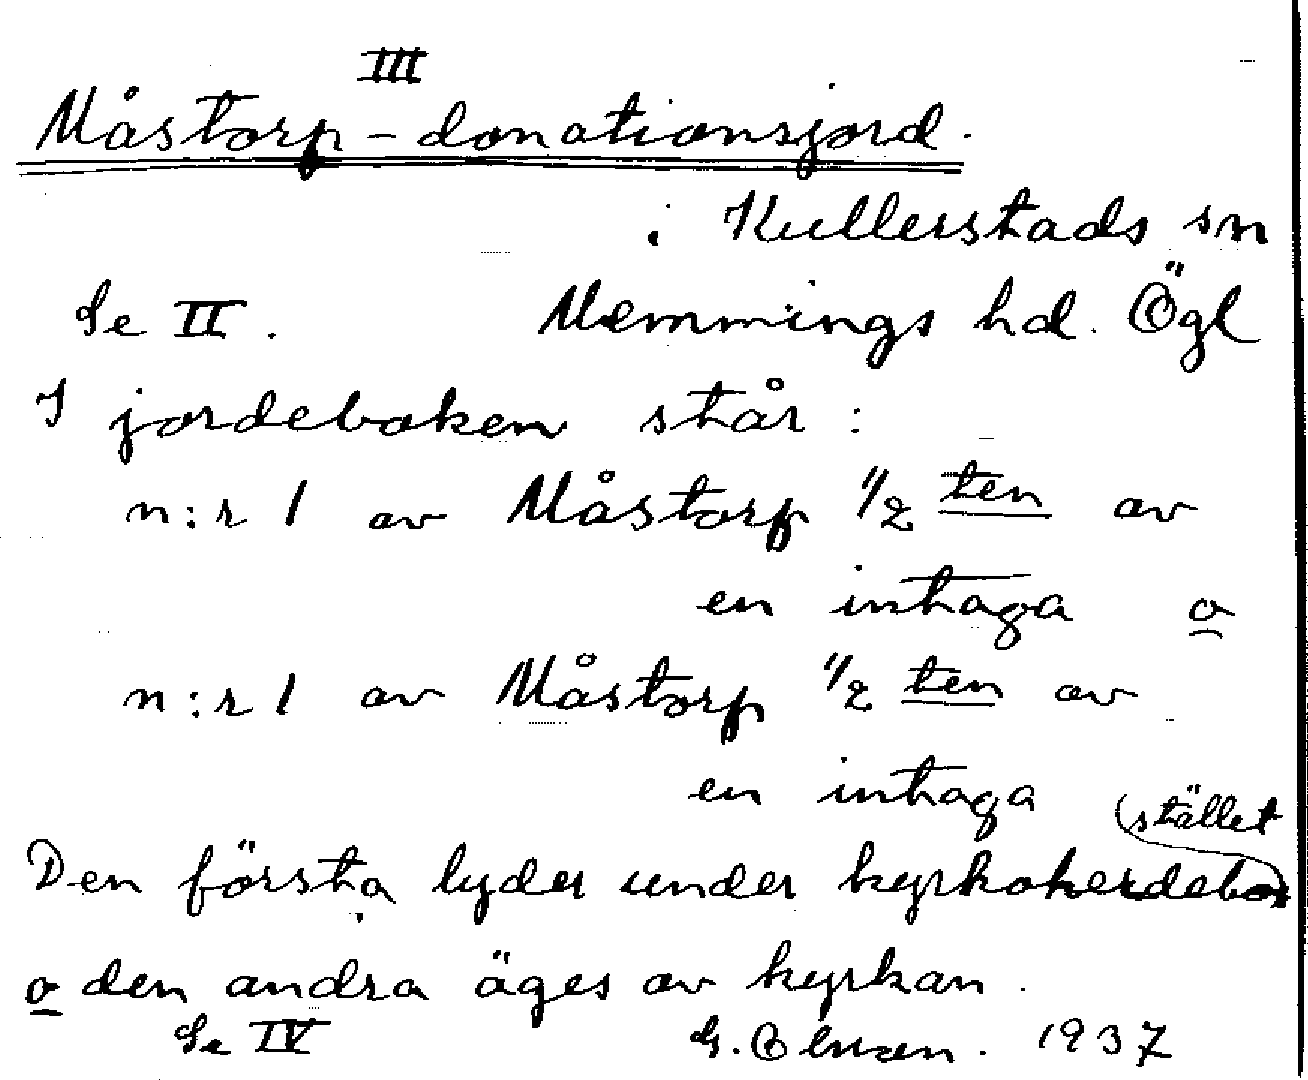 III
Måstorp - donationsjord.
i Kullerstads sn
Se II. Memmings hd. Ögl
I jordeboken står:
n:r 1 av Måstorp 1/2 ten av
en intaga o
n:r 1 av Måstorp 1/2 ten av
en intaga
Den första lyder under kyrkoherdebostället
o den andra äges av kyrkan.
Se IV G. 1937